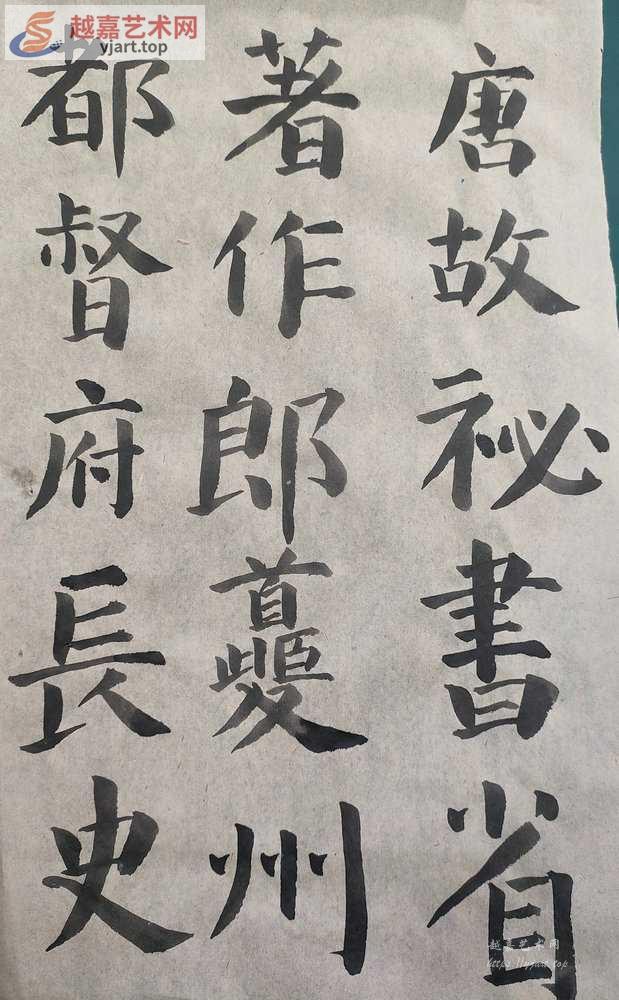 越嘉艺术网
yjart.top
唐故祕書省
著作郎夔州
都督府長史
越嘉艺术网
https://yjart.top